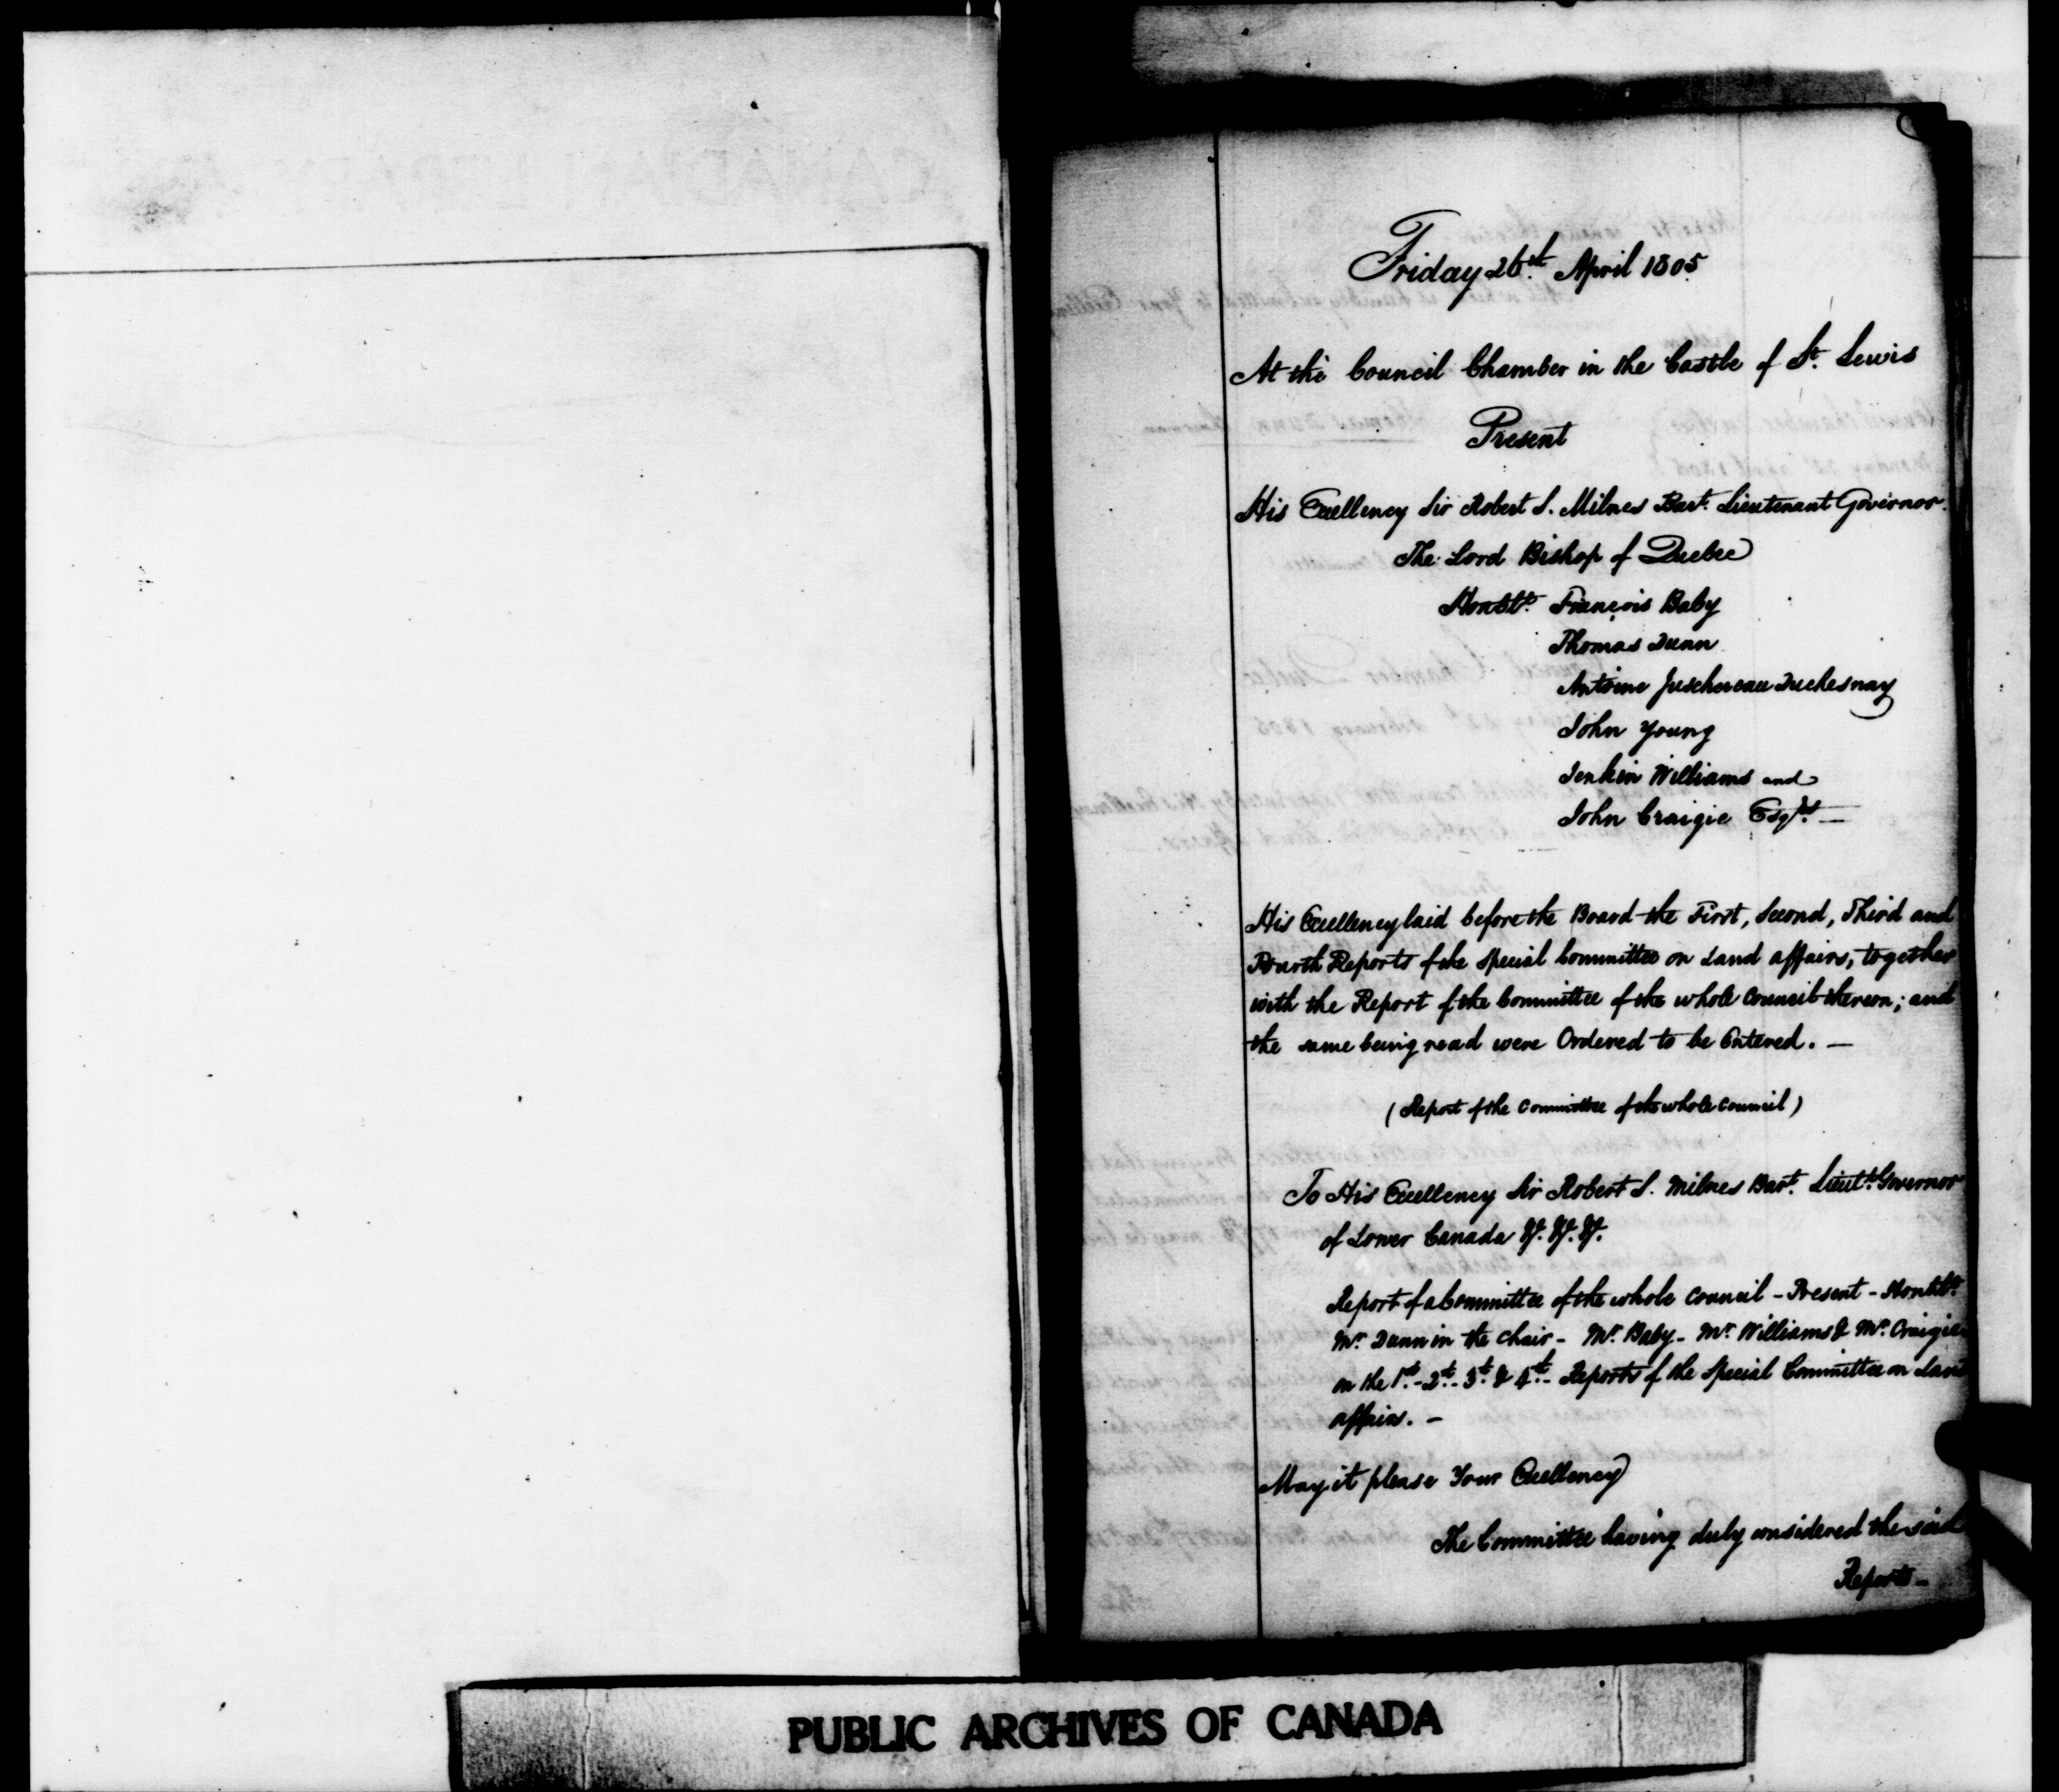 Friday 26th April 1805
At the Council Chamber in the Castle of St. Lewis
Present
His Excellency Sir Robert S. Milnes Bart. Lieutenant Governor.
The Lord Bishop of Quebec
Honble. François Baby
Thomas Dunn
Antoine Juschereau Duchesnay
John Young
Jenkin Williams and
John Craigie Esqrs. —
His Excellency laid before the Board the First, Second, Third and
Fourth Reports of the Special Committee on Land affairs, together
with the Report of the Committee of the whole Council thereon; and
the same being read were Ordered to be Entered. —
(Report of the Committee of the whole Council)
To His Excellency Sir Robert S. Milnes Bart. Lieut. Governor
of Lower Canada &c. &c. &c.
Report of a Committee of the whole Council - Present - Honble.
Mr. Dunn in the Chair - Mr. Baby - Mr. Williams & Mr. Craigie
on the 1st. - 2d. - 3d. & 4th. - Reports of the Special Committee on Land
affairs. —
May it please Your Excellency
The Committee having duly considered the said
Reports -
PUBLIC ARCHIVES OF CANADA